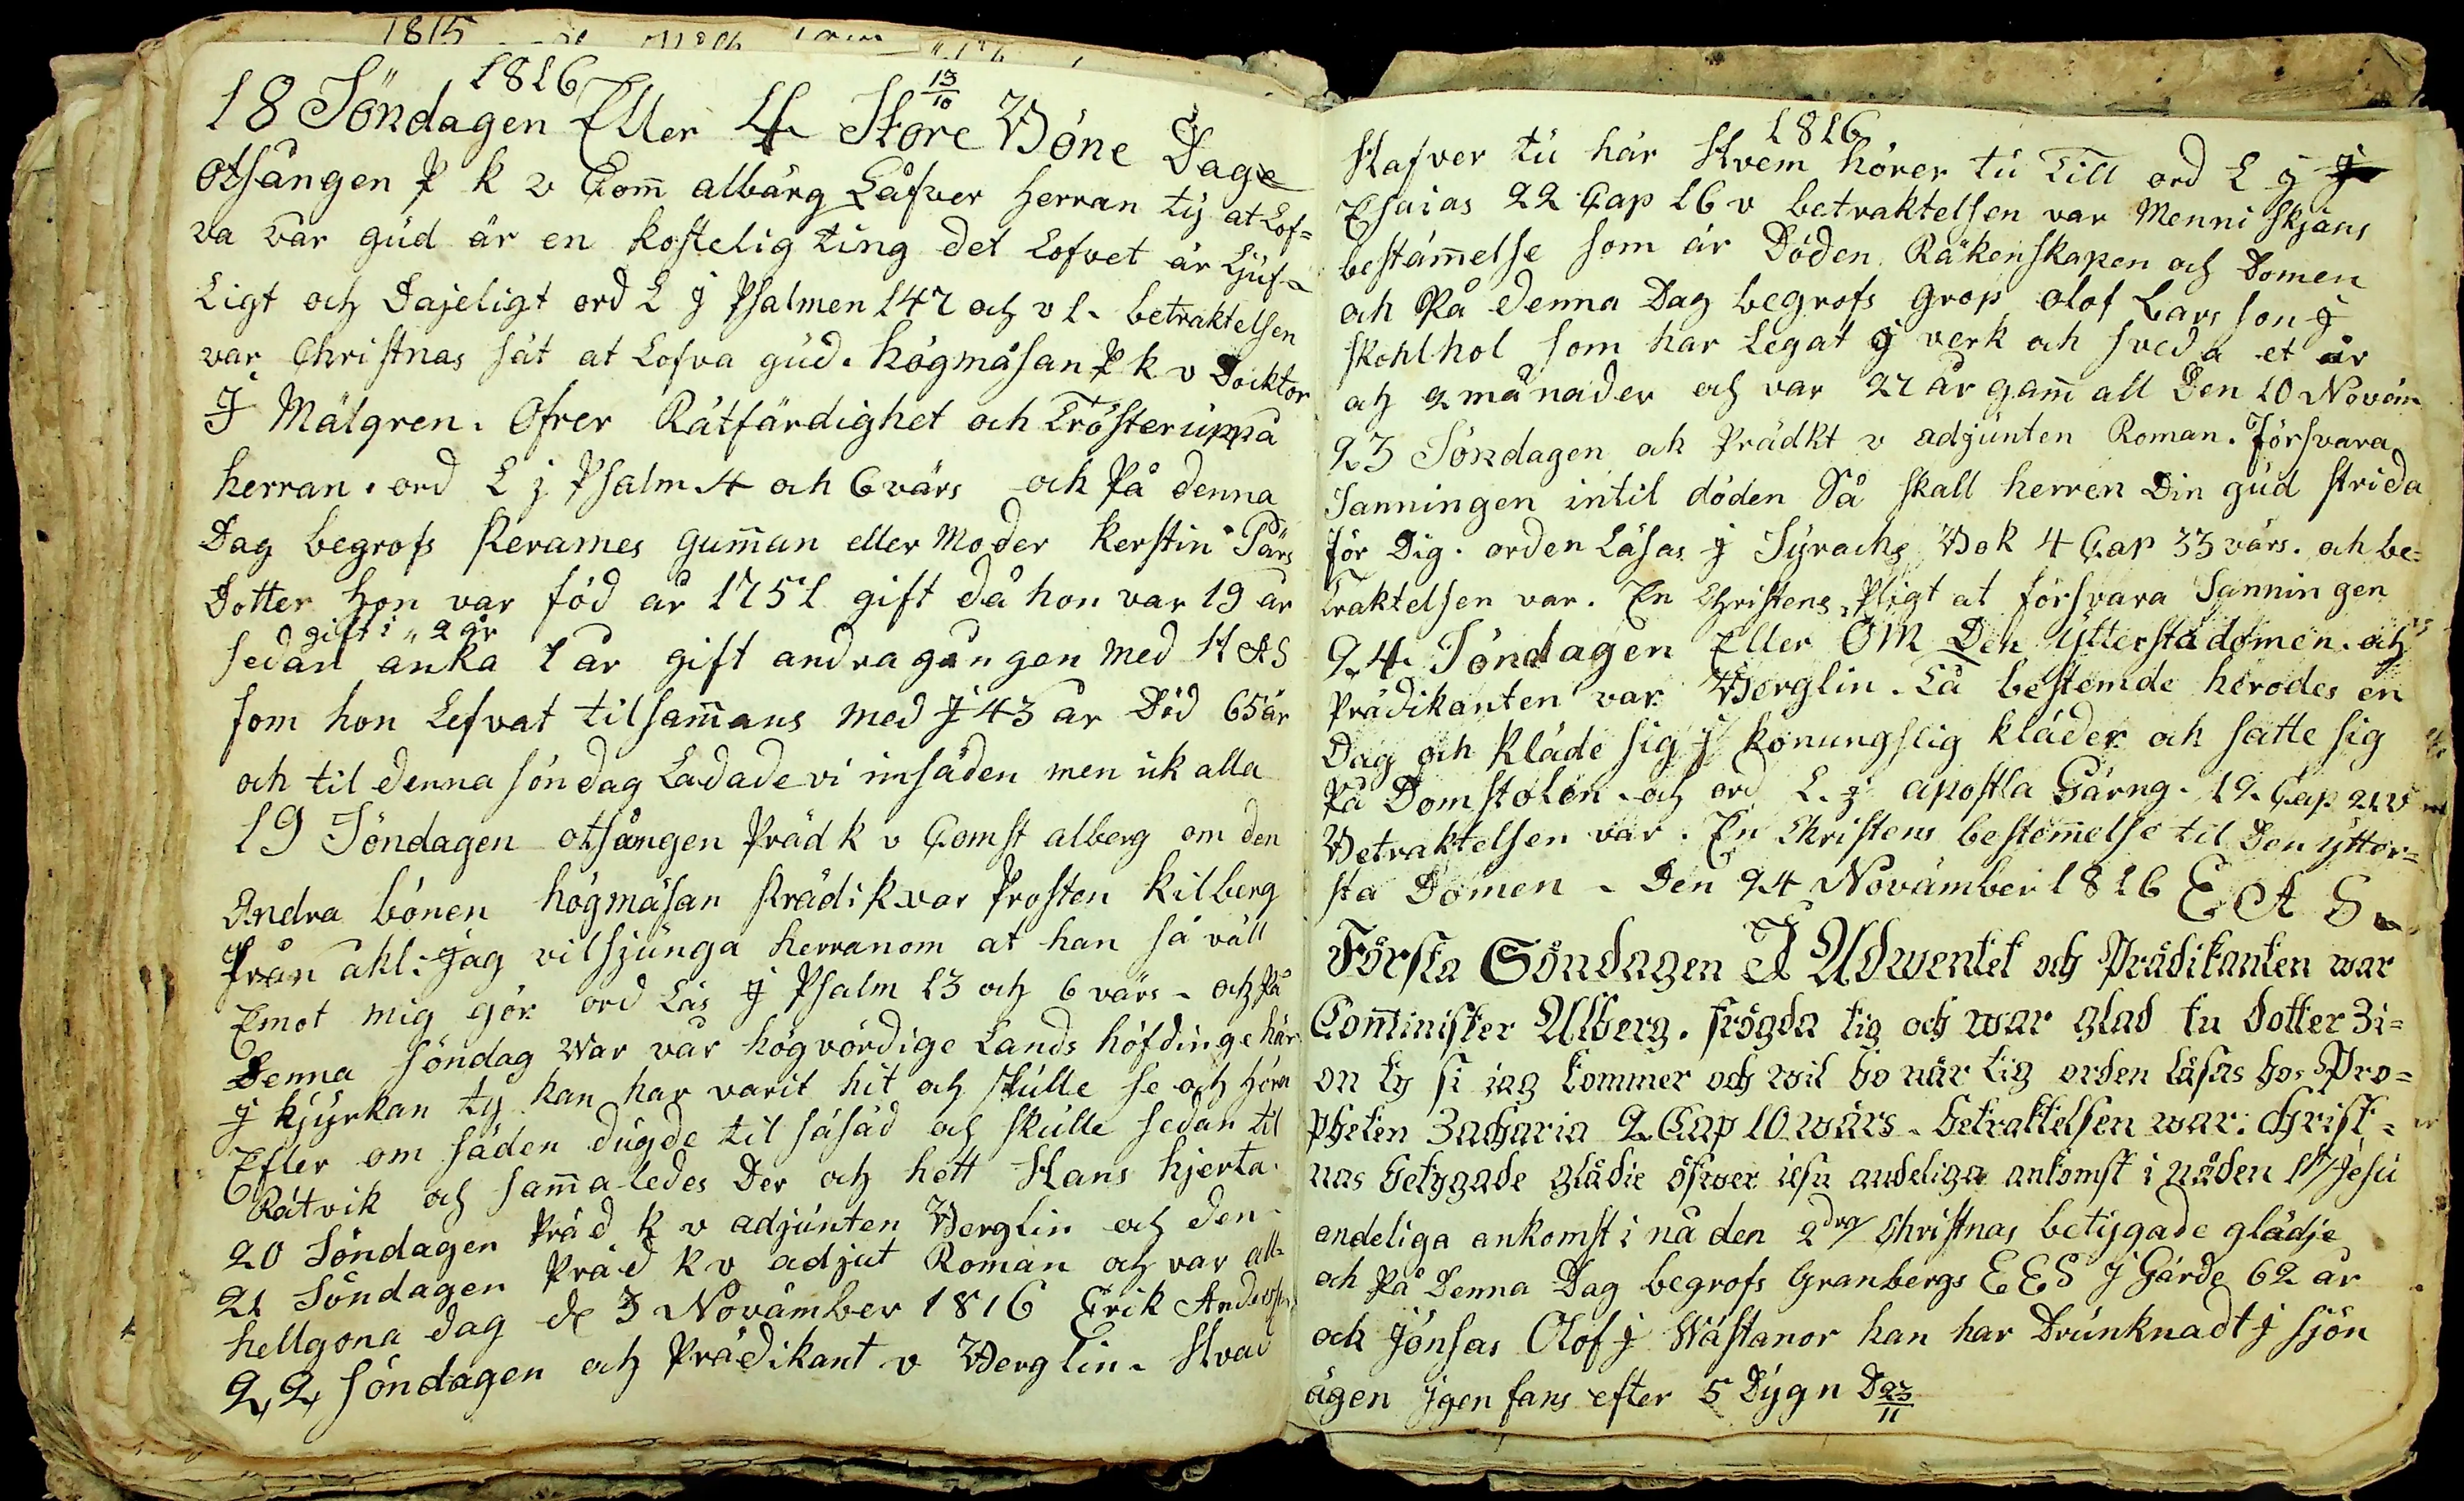 1815
1816
18 Söndagen Eller 4 Store Böne Dage 13/10
Otsången P k v Com̄ albärg Låfver Herran ty at Lof=
va vår gud är en kostelig ting det Lofvet är Ljuf=
Ligt och Dajeligt ord L j Psalmen 147 och v 1. betraktelsen
var Christnas sät at Lofva gud. högmäsan P k v Docktor
J Mälgren. Ofrer Rätfärdighet och Tröster uppå
herran. ord L j Psalm 4 och 6 värs och På denna
Dag begrofs Rerames gum̄an eller Moder Kerstin Pärs
Dotter hon var föd år 1751 gift då hon var 19 år
gift i 2 år
sedan änka 1 år gift andra gången med H A S
som hon Lefvat tilsam̄ans med J 43 år Död 65 år
och til denna söndag Ladade vi insäden men ik alla
19 Söndagen otsången Präd k v Comst alberg om den
Andra bönen högmäsan Prädik var Prosten Kilberg
från akl: Jag vil sjunga herranom at han så väll
Emot mig gör ord Läs j Psalm 13 och 6 värs - och På
Denna söndag War vår högvördige Lands höfdinge här
j kjyrkan ty han har varit hit och skulle se och höra
Efter om säden dugde til såsäd och skulle sedan til
Rätvik och sam̄aledes Der och hett Hans hjerta.
20 Söndagen Präd k v adjunten Berglin och den
21 Söndagen Präd k v adjut Roman och var all=
hellgona dag de 3 Novämber 1816 Erik Anderss
22 söndagen och Prädikant v Berglin. Hvad
1816
Hafver tu här Hvem hörer tu Till ord L j
Esaias 22 Cap 16 v betraktelsen var Menniskjans
bestäm̄else som är Döden Räkenskapen och Domen
och På denna Dag begrofs grop olof Lars son J
skohlhol som har Legat j verk och sveda et år
och 2 månader och var 27 år gam̄all Den 10 Noväm
23 Söndagen och Prädkt v adjunten Roman. Försvara
Sanningen intil döden Så skall herren Din gud strida
för Dig. orden Läsas j Syrachs Bok 4 Cap 33 värs. och be=
traktelsen var. En Christens Pligt at försvara Sanningen
24 Söndagen Eller OM Den yttersta domen. och
Prädikanten var Berglin. Så bestemde herodes en
Dag och kläde sig j konungslig kläder och satte sig
På Domstolen. och ord L. j apostla Gärng. 12 Cap 21 v
Betraktelsen var. En Christens bestem̄else til Den ytter=
sta Domen - Den 24 Novämber 1816 E A S
Första Söndagen I Adwentet och Prädikanten war
Com̄inister Alberg. frögda tig och war glad tu dotter Zi=
on ty si iag kommer och wil bo när tig orden läsas hos Pro=
pheten Zacharia 2 Cap 10 wärs. betraktelsen war: Christ=
nas betygade glädie öfwer iesu andeliga ankomst i nåden 1st/ Jesu
andeliga ankomst i nåden 2dra/ Christnas betygade glädje
och På Denna Dag begrofs Granbergs E E S J Gärde 62 år
och Jönsas Olof j Wästanor han har Drunknadt j sjön
ägen Jgen fans efter 5 Dygn D 23/11